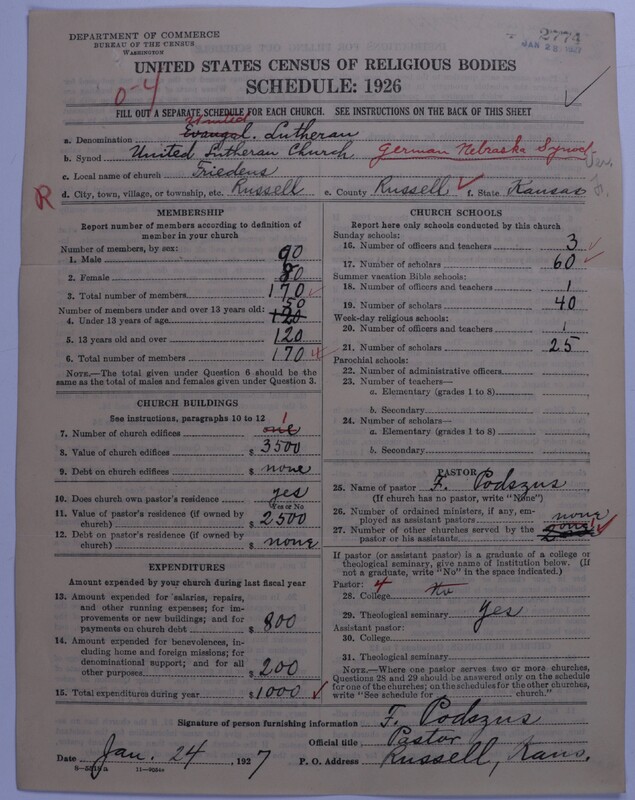 DEPARTMENT OF COMMERCE
BUREAU OF THE CENSUS
WASHINGTON
2774
UNITED STATES CENSUS OF RELIGIOUS BODIES
SCHEDULE: 1926
0-4
FILL OUT A SEPARATE SCHEDULE FOR EACH CHURCH. SEE INSTRUCTIONS ON THE BACK OF THIS SHEET
United
a. Denomination Evangel. Lutheran
b. Synod United Lutheran Church German Nebraska Synod
c. Local name of church Friedens
R
d. City, town, village, or township, etc. Russell e. County Russell f. State Kansas
MEMBERSHIP
Report number of members according to definition of member in your church
Number of members, by sex:
1. Male 90
2. Female 80
3. Total number of members 170
Number of members under and over 13 years old: 50
4. Under 13 years of age 120
5. 13 years old and over 120
6. Total number of members 170
NOTE.—The total given under Question 6 should be the
same as the total of males and females given under Question 3.
CHURCH BUILDINGS
See instructions, paragraphs 10 to 12
1
7. Number of church edifices one
8. Value of church edifices $ 3500
9. Debt on church edifices $ none
10. Does church own pastor's residence yes
Yes or No
11. Value of pastor's residence (if owned by
church) $ 2500
12. Debt on pastor's residence (if owned by
church) $ none
EXPENDITURES
Amount expended by your church during last fiscal year
13. Amount expended for salaries, repairs,
and other running expenses; for im-
provements or new buildings; and for
payments on church debt $ 800
14. Amount expended for benevolences, in-
cluding home and foreign missions; for
denominational support; and for all
other purposes $ 200
15. Total expenditures during year $ 1000
CHURCH SCHOOLS
Report here only schools conducted by this church
Sunday schools:
16. Number of officers and teachers 3
17. Number of scholars 60
Summer vacation Bible schools:
18. Number of officers and teachers 1
19. Number of scholars 40
Week-day religious schools:
20. Number of officers and teachers 1
21. Number of scholars 25
Parochial schools:
22. Number of administrative officers
23. Number of teachers—
a. Elementary (grades 1 to 8)
b. Secondary
24. Number of scholars—
a. Elementary (grades 1 to 8)
b. Secondary
PASTOR
25. Name of pastor F. Podszus
(If church has no pastor, write "None")
26. Number of ordained ministers, if any, em-
ployed as assistant pastors none
27. Number of other churches served by the
pastor or his assistants
If pastor (or assistant pastor) is a graduate of a college or
theological seminary, give name of institution below. (If
not a graduate, write "No" in the space indicated.)
Pastor: 4
28. College No
29. Theological seminary Yes
Assistant pastor:
30. College
31. Theological seminary
NOTE.—Where one pastor serves two or more churches,
Questions 28 and 29 should be answered only on the schedule
for one of the churches; on the schedules for the other churches,
write "See schedule for church."
Signature of person furnishing information F. Podszus
Official title Pastor
Date Jan. 24, 1927 P. O. Address Russell, Kans.